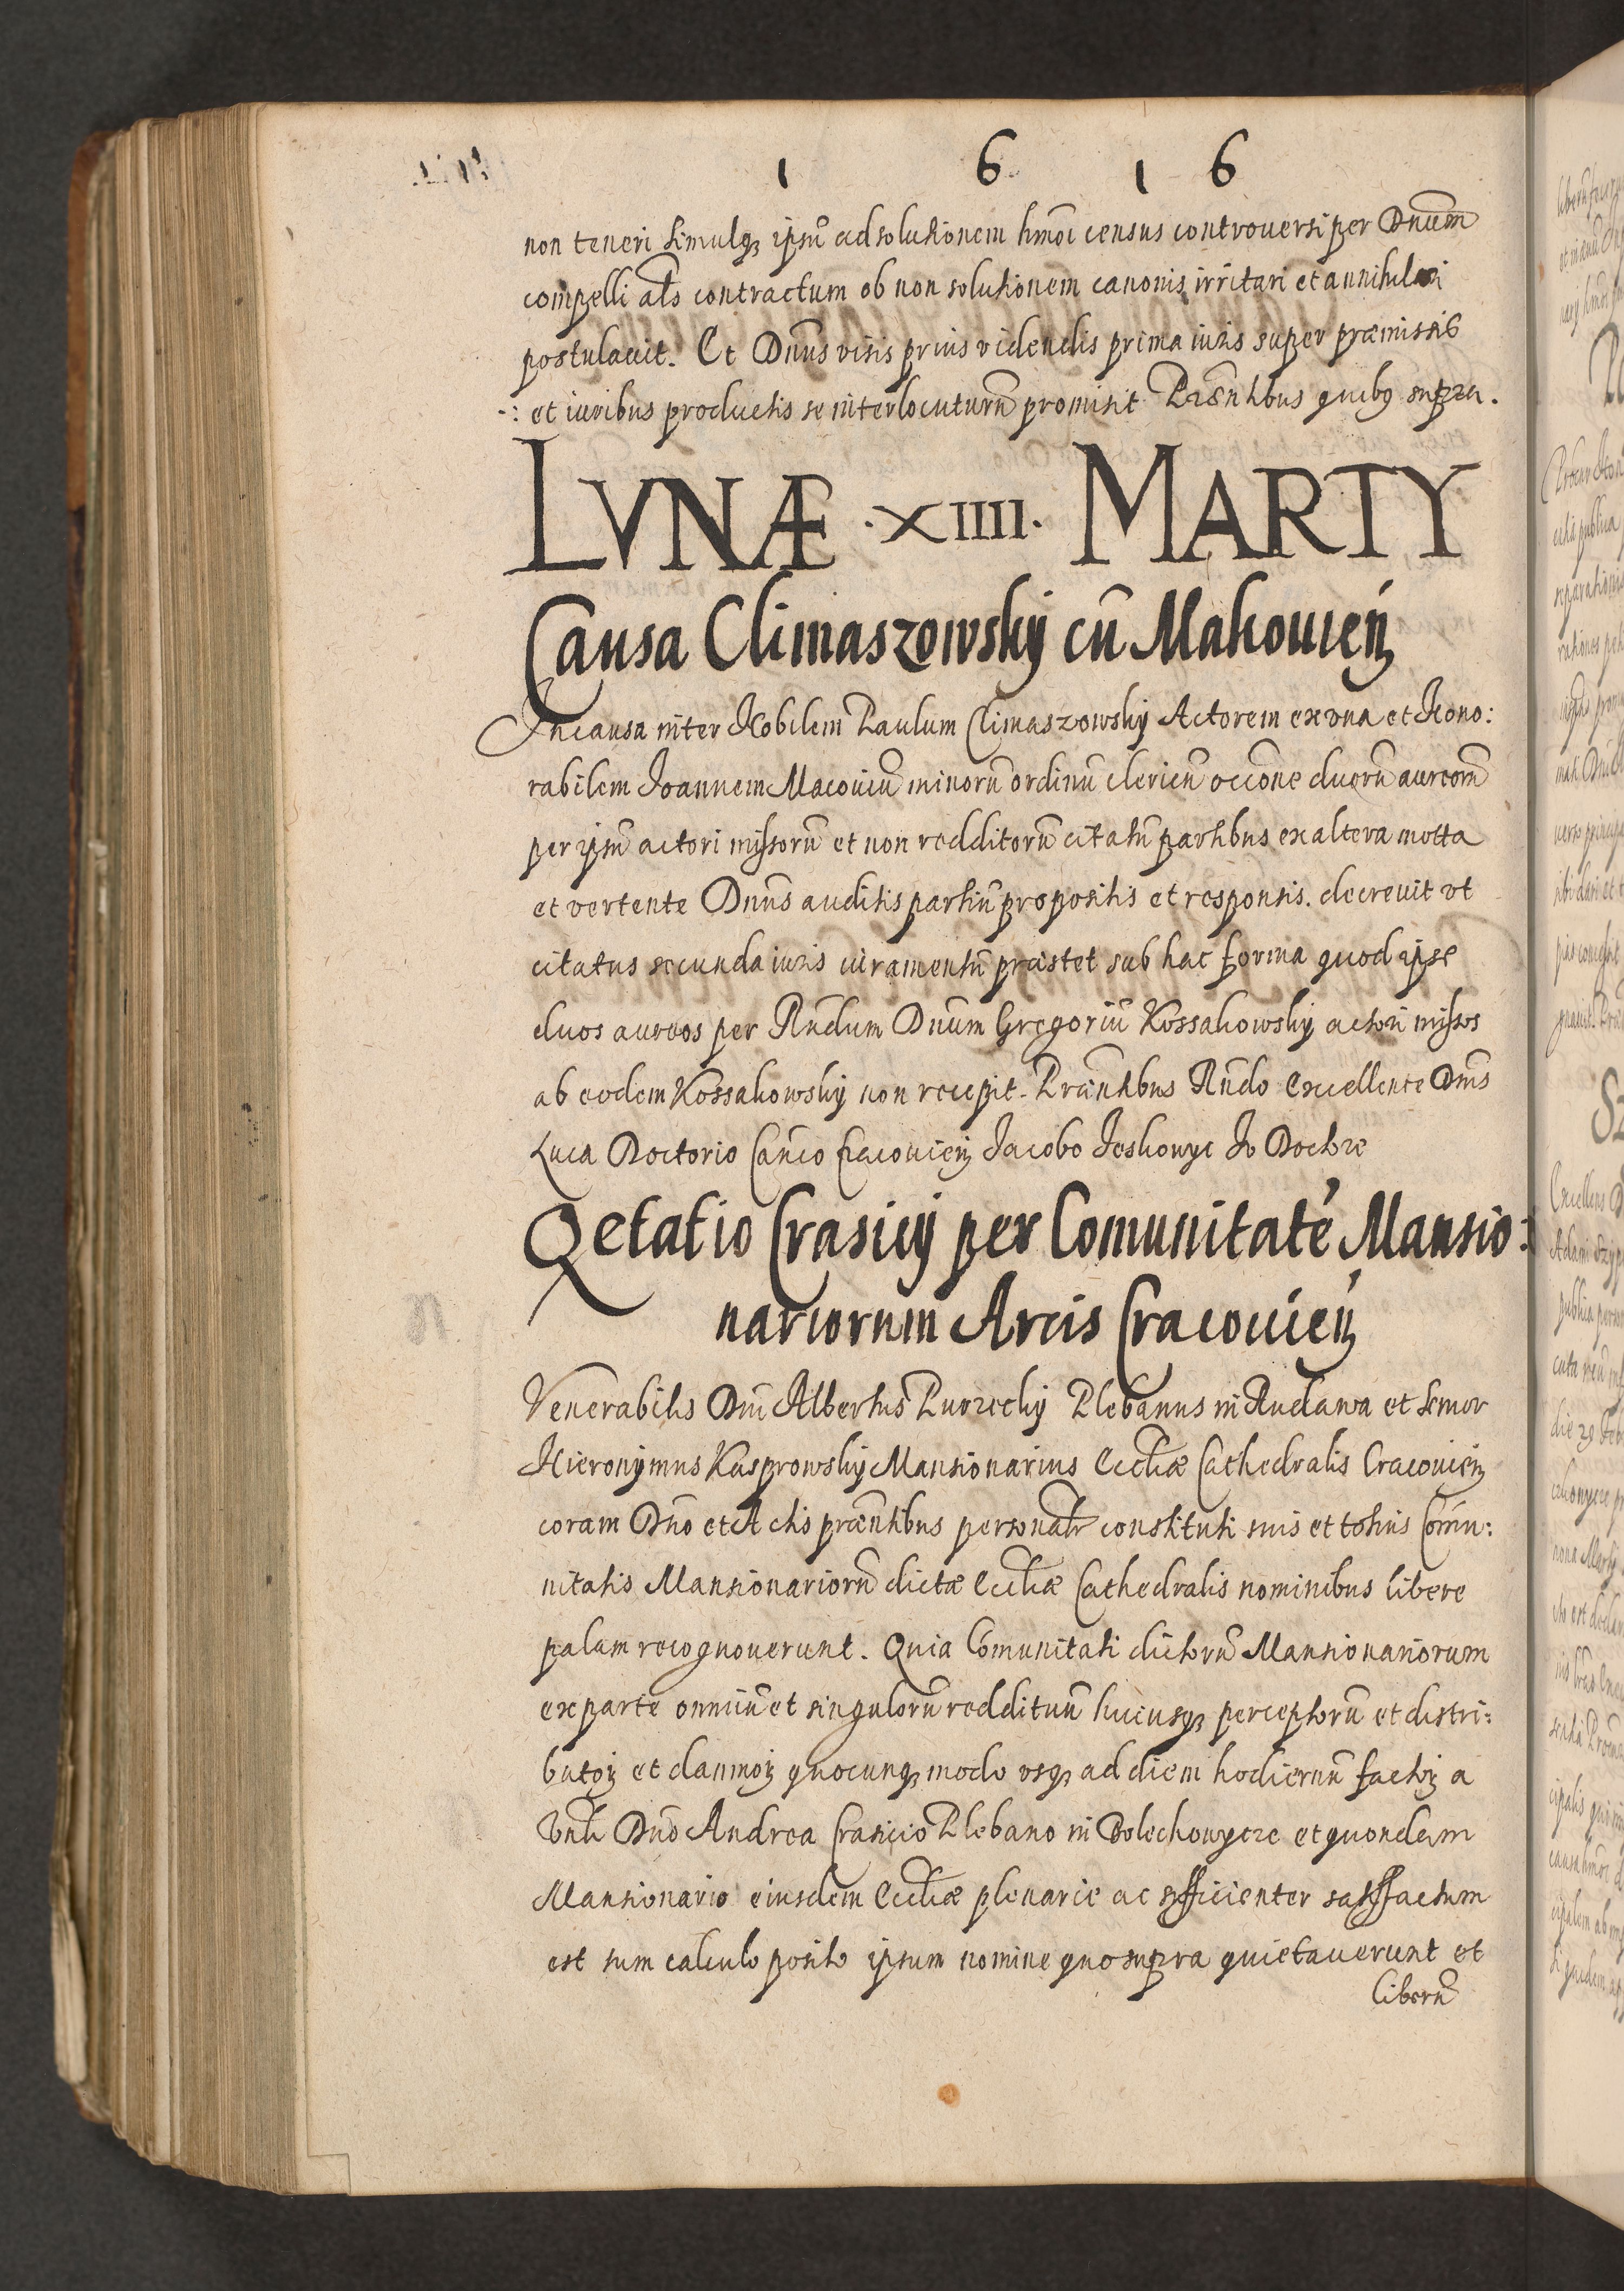 1 6 1 6
non teneri simulq3 ipsũ ad solutionem hmõi census controuersi per Dnũm
compelli als contractum ob non solutionem canonis irritari et annihilari
postulauit. Et Dnũs visis prius videndis prima iuris super præmissis
et iuribus productis se interlocuturũ promisit Præñtibus quibq supra.
LVNÆ .XIIII. MARTY
Causa Climaszowskij cũ Makouieñ
In causa inter Nobilem Paulum Climaszowskij Actorem ex vna et Hono:
rabilem Joannem Macouiũ minorũ ordinũ clericũ occõne duorũ aureorũ
per ipsũ actori missorũ et non redditorũ citatũ partibus ex altera motta
et vertente Dnũs auditis partiũ propositis et responsis. decreuit vt
citatus secunda iuris iuramentũ præstet sub hac forma quod ipse
duos aureos per Rñdum Dnũm Gregoriũ Kossakowskij actori missos
ab eodem Kossakowskij non recepit. Præñtibus Rñdo Excellente Dñis
Luca Doctorio Cañco Cracouieñ Jacobo Jeskowyc Jo Doctore
Qetatio Crasicij per Comunitatẽ Mansio:
nariorum Arcis Cracouieñ
Venerabilis Dñi Albertus Puorecky Plebanus in Rudawa et Senior
Hieronijmus Kasprowskij Mansionarius Eccliæ Cathedralis Cracouieñ
coram Dño et Actis præñtibus personalr constituti suis et totius Comũ:
nitatis Mansionariorũ dictæ Eccliæ Cathedralis nominibus libere
palam recognouerunt. Quia Comunitati dictorũ Mansionariorum
ex parte omniũ et singulorũ reddituũ huiusq3 perceptorũ et distri:
butoꝝ et damnoꝝ quocunq3 modo vsq3 ad diem hodiernũ factoꝝ a
Vnli Dño Andrea Crasicio Plebano in Bolechowycze et quondam
Mansionario eiusdem Eccliæ plenarie ac sufficienter satisfactum
est cum calculo posito ipsum nomine quo supra quietauerunt et
liberũ